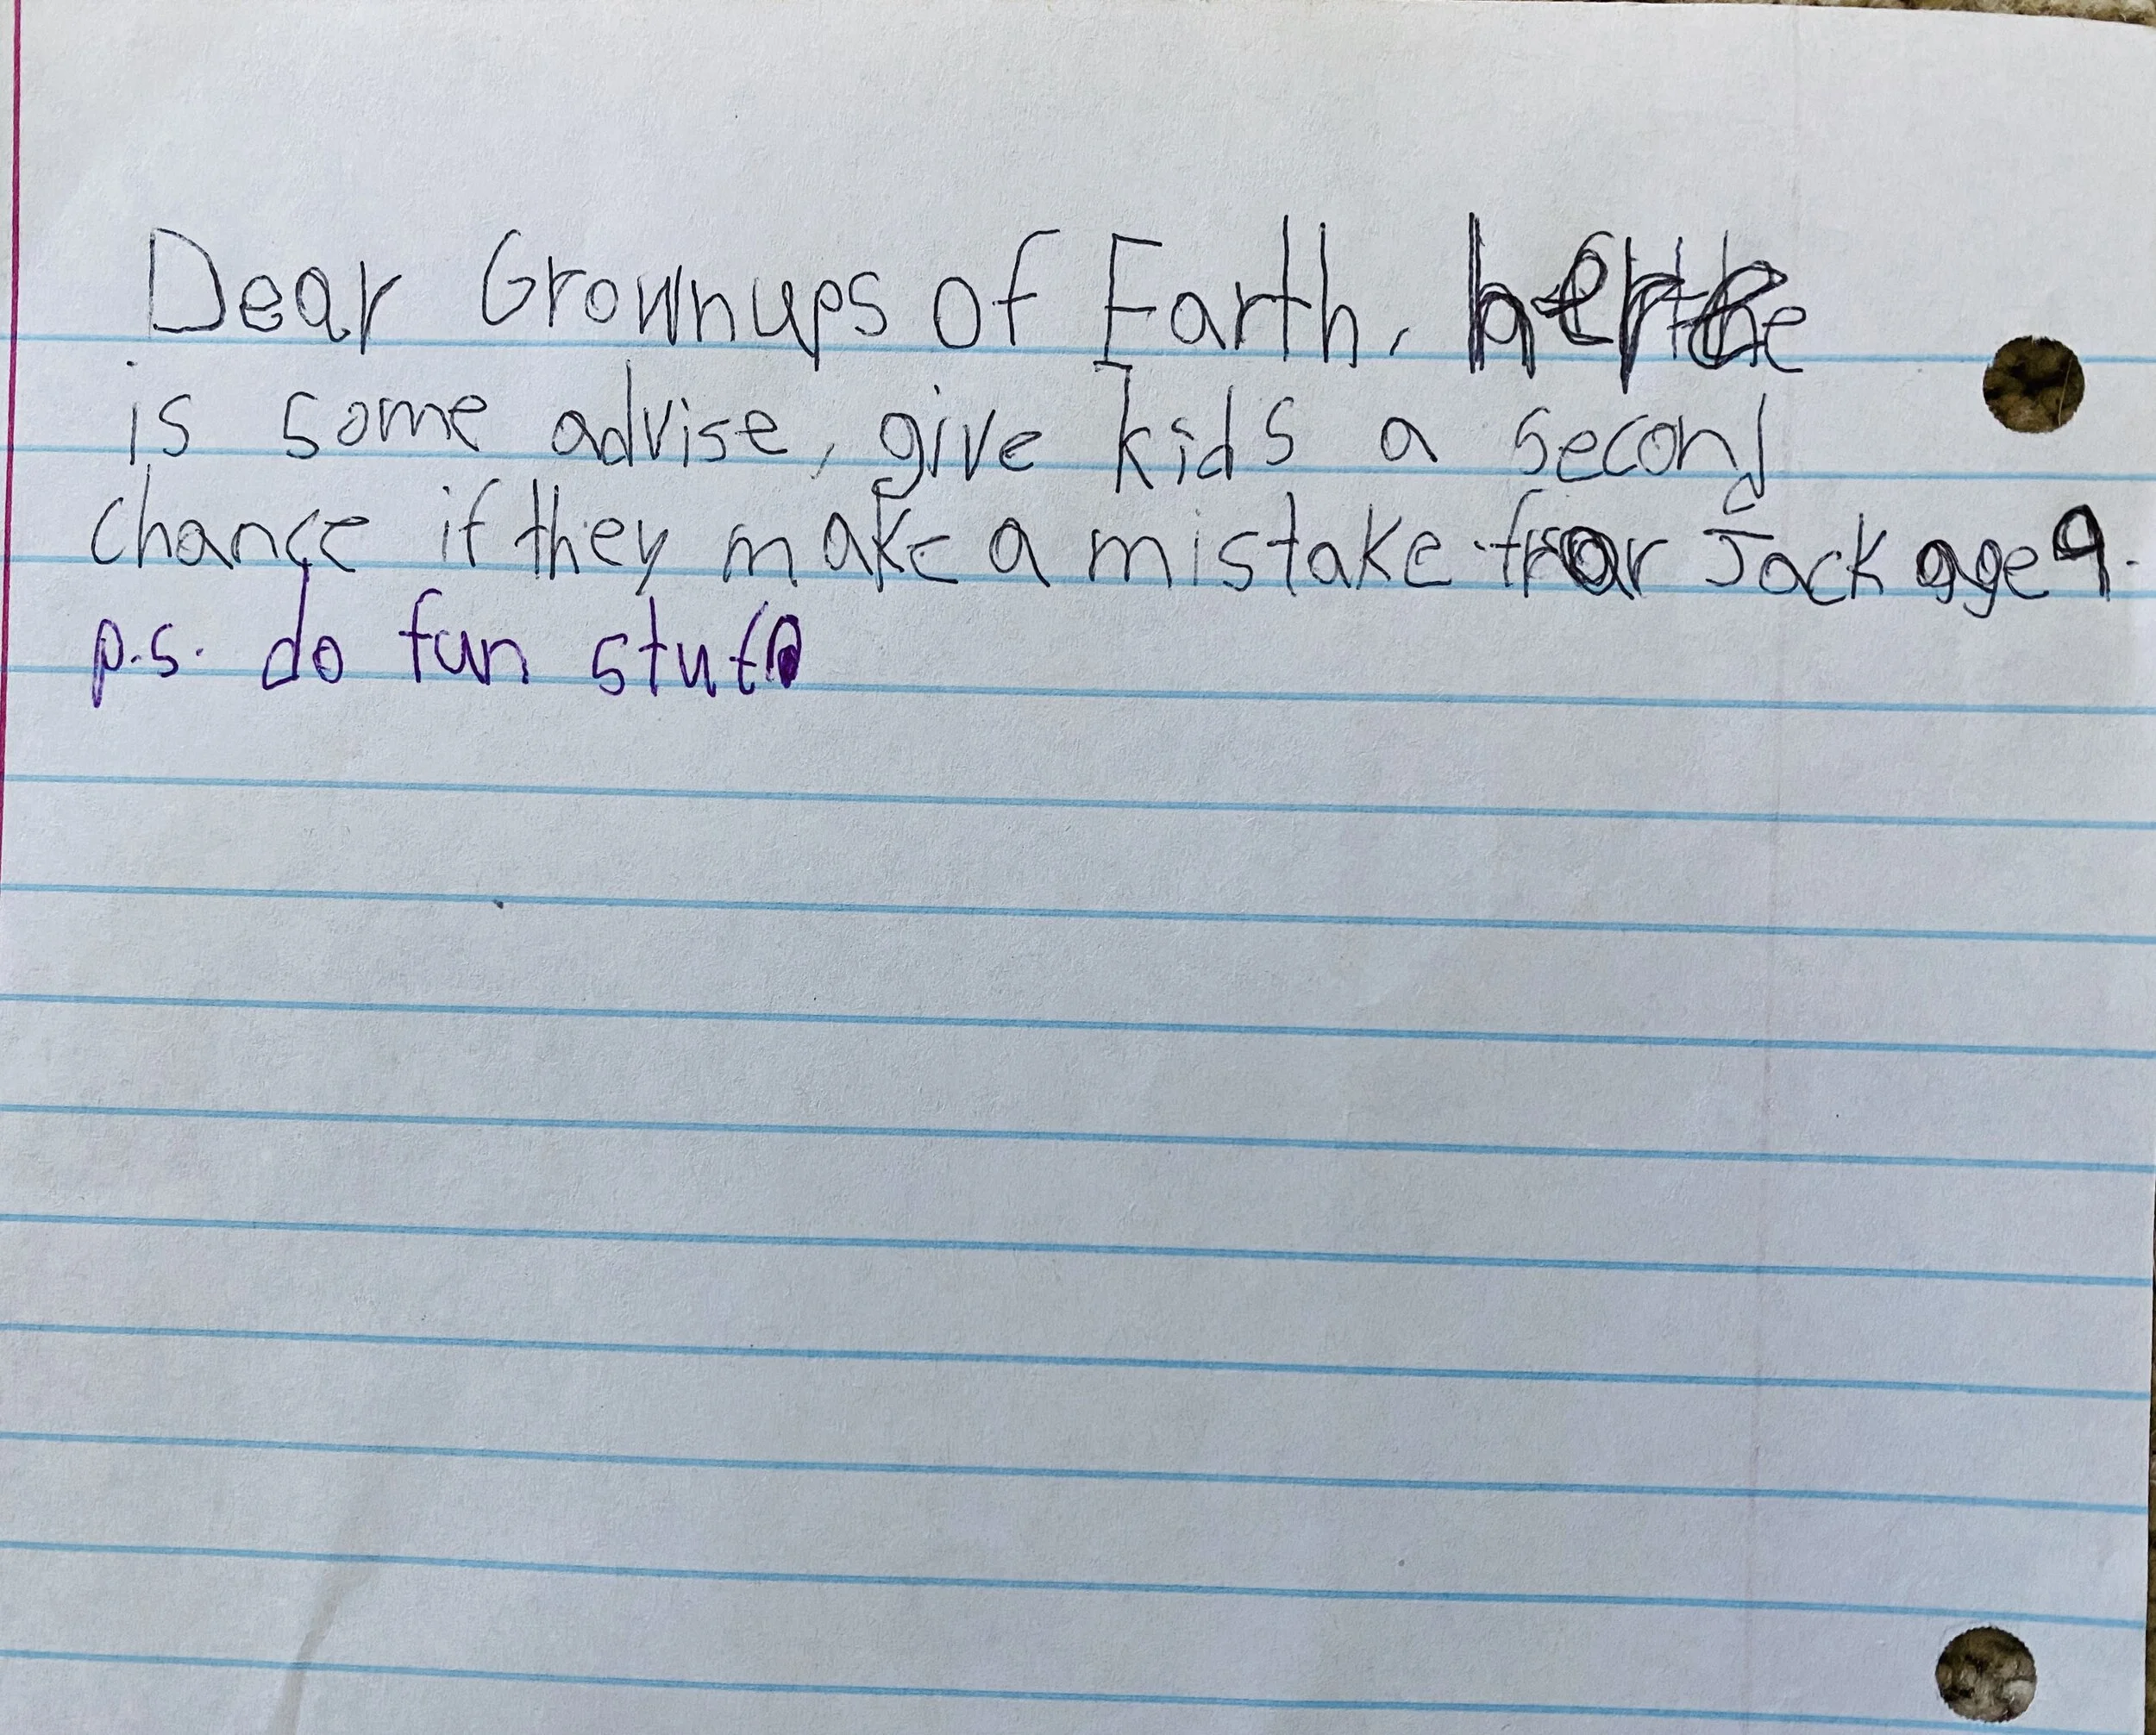 Dear Grownups of Earth, here
is some advise, give kids a second
chance if they make a mistake. from Jack age 9.
p.s. do fun stuff